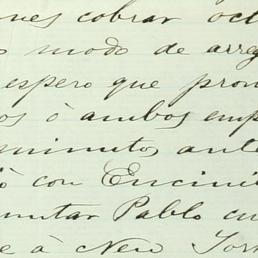 nes cobrar oct
modo de arreg
espero que pron
os ò ambos emp
minutos ante
ò con Encini
mutar Pablo cu
e à New York